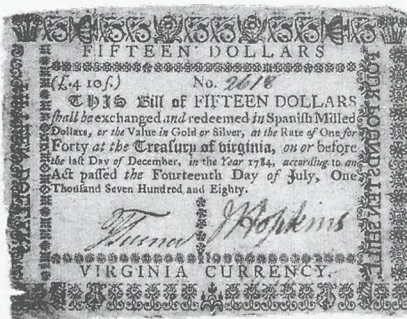 FIFTEEN DOLLARS
(£.4 10ſ.) No. 2618
THIS Bill of FIFTEEN DOLLARS
ſhall be exchanged and redeemed in Spaniſh Milled
Dollars, or the Value in Gold or Silver, at the Rate of One for
Forty at the Treaſury of Virginia, on or before
the laſt Day of December, in the Year 1784, according to an
Act paſſed the Fourteenth Day of July, One
Thouſand Seven Hundred and Eighty.
J Hopkins
VIRGINIA CURRENCY.
FOUR POUNDS TEN SHIL.